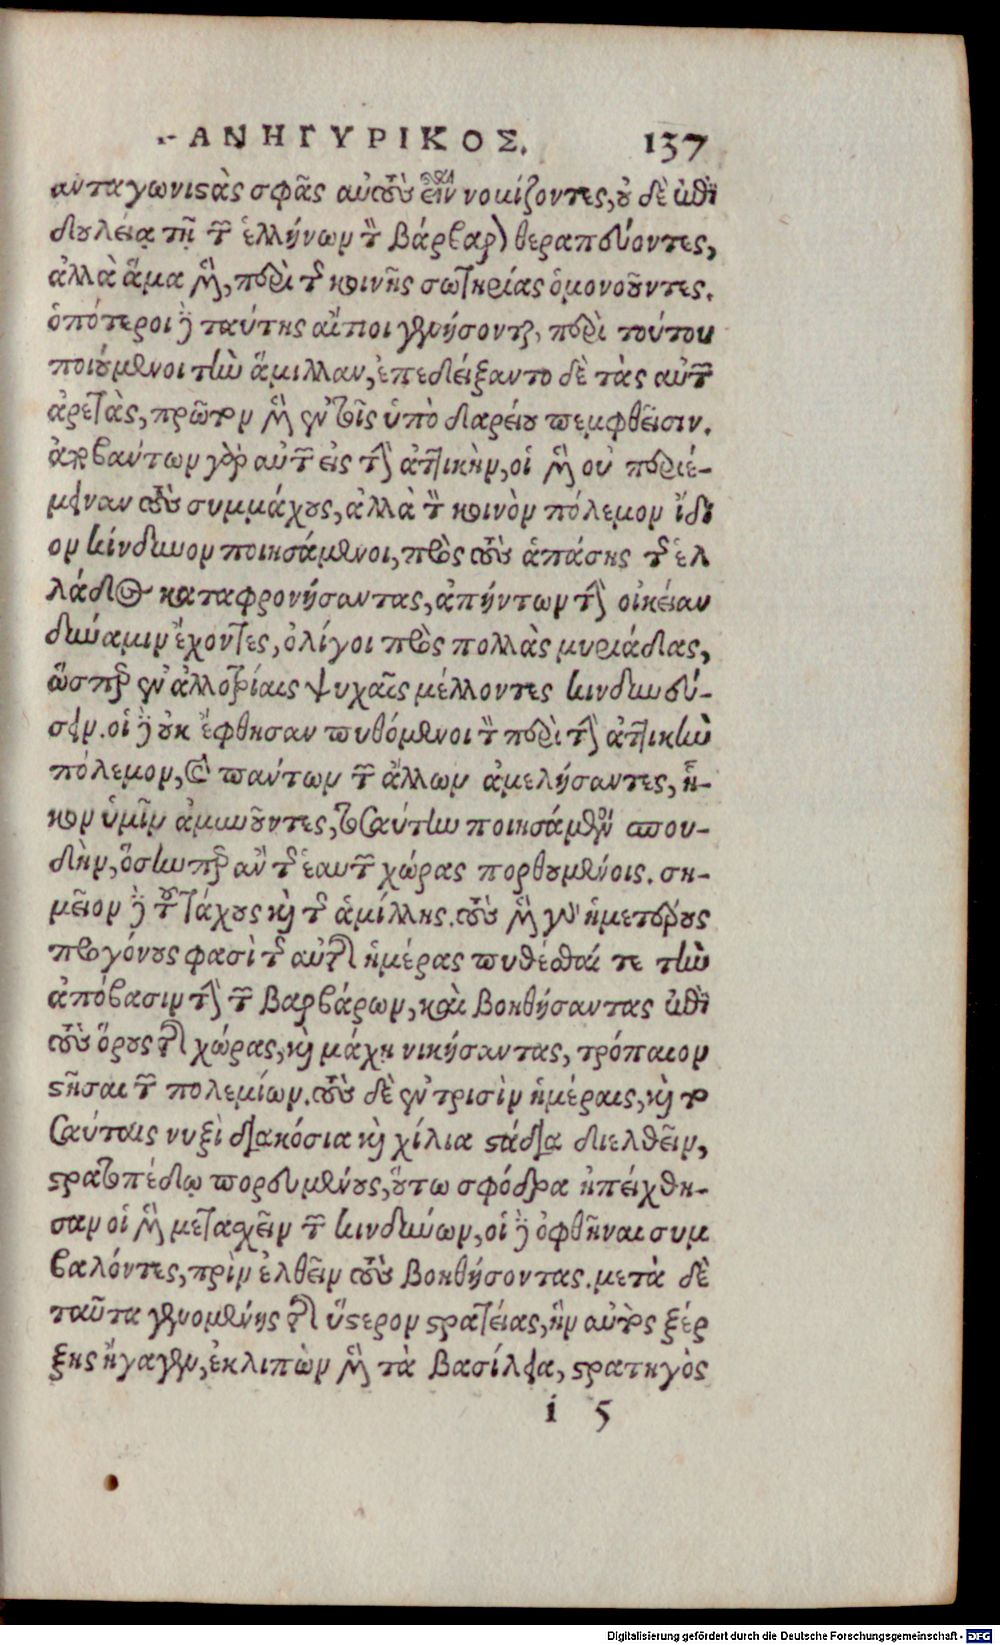 ΠΑΝΗΓΥΡΙΚΟΣ. 137
ανταγωνιστὰς σφᾶς αὐτοὺς εἶναι νομίζοντες, οὐδὲ ἐπὶ
δουλείᾳ τῇ τῶν ἑλλήνων τὸν βάρβαρον θεραπεύοντες,
ἀλλὰ ἅμα μὲν, περὶ τῆς κοινῆς σωτηρίας ὁμονοοῦντες.
ὁπότεροι δὲ ταύτης αἴτιοι γενήσονται, περὶ τούτου
ποιούμενοι τὴν ἅμιλλαν, ἐπεδείξαντο δὲ τὰς αὑτῶν
ἀρετὰς, πρῶτον μὲν ἐν τοῖς ὑπὸ δαρείου πεμφθεῖσιν.
ἀποβάντων γὰρ αὐτῶν εἰς τὴν ἀττικὴν, οἱ μὲν οὐ περιέ-
μειναν τοὺς συμμάχους, ἀλλὰ τὸν κοινὸν πόλεμον ἴδι
ον κίνδυνον ποιησάμενοι, πρὸς τοὺς ἁπάσης τῆς ἑλ
λάδος καταφρονήσαντας, ἀπήντων τὴν οἰκείαν
δύναμιν ἔχοντες, ὀλίγοι πρὸς πολλὰς μυριάδας,
ὥσπερ ἐν ἀλλοτρίαις ψυχαῖς μέλλοντες κινδυνεύ-
σειν. οἱ δὲ οὐκ ἔφθησαν πυθόμενοι τὸν περὶ τὴν ἀττικὴν
πόλεμον, καὶ πάντων τῶν ἄλλων ἀμελήσαντες, ἧ-
κον ὑμῖν ἀμυνοῦντες, τοσαύτην ποιησάμενοι σπου-
δὴν, ὅσηνπερ ἂν τῆς ἑαυτῶν χώρας πορθουμένοις. ση-
μεῖον δὲ τοῦ τάχους καὶ τῆς ἁμίλλης. τοὺς μὲν γὰρ ἡμετέρους
προγόνους φασὶ τῆς αὐτῆς ἡμέρας πυθέσθαι τε τὴν
ἀπόβασιν τὴν τῶν βαρβάρων, καὶ βοηθήσαντας ἐπὶ
τοὺς ὅρους τῆς χώρας, καὶ μάχῃ νικήσαντας, τρόπαιον
στῆσαι τῶν πολεμίων. τοὺς δὲ ἐν τρισὶν ἡμέραις, καὶ το
σαύταις νυξὶ διακόσια καὶ χίλια στάδια διελθεῖν,
στρατοπέδῳ πορευομένους, οὕτω σφόδρα ἠπείχθη-
σαν οἱ μὲν μετασχεῖν τῶν κινδύνων, οἱ δὲ ὀφθῆναι συμ
βαλόντες, πρὶν ἐλθεῖν τοὺς βοηθήσοντας. μετὰ δὲ
ταῦτα γενομένης τῆς ὕστερον στρατείας, ἣν αὐτὸς ξέρ
ξης ἤγαγεν, ἐκλιπὼν μὲν τὰ βασίλεια, στρατηγὸς
i 5
Digitalisierung gefördert durch die Deutsche Forschungsgemeinschaft - DFG